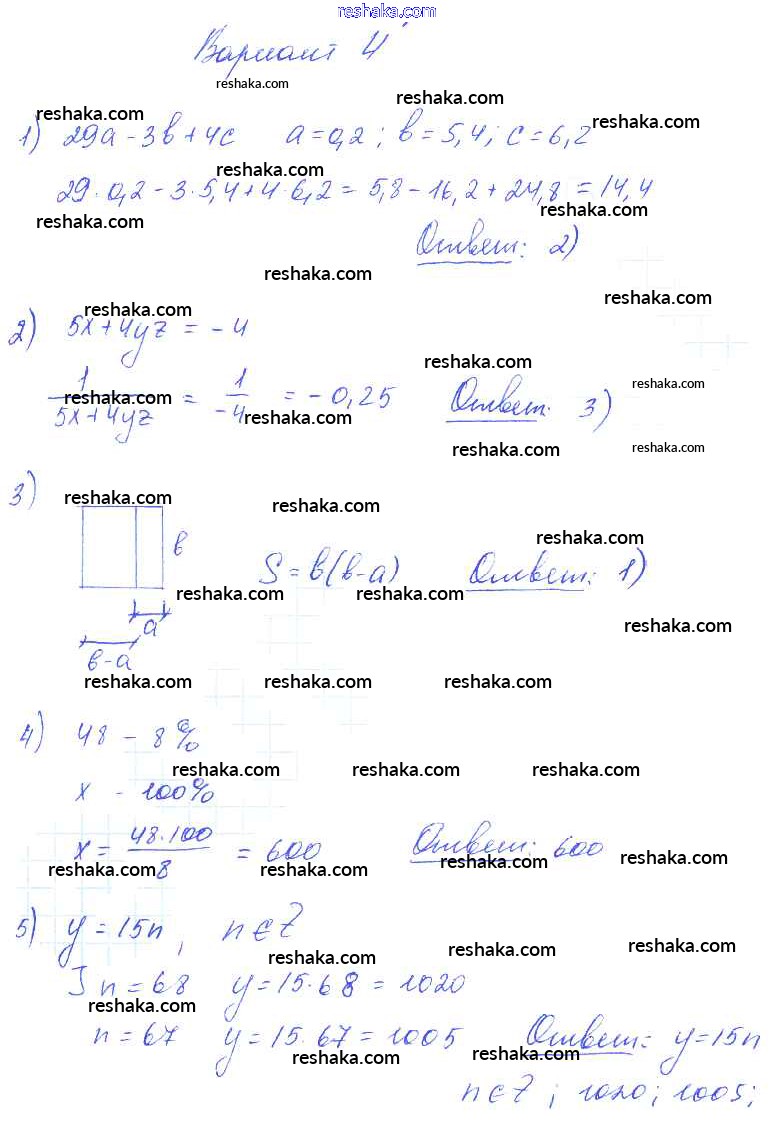 reshaka.com
Вариант 4
reshaka.com
reshaka.com
reshaka.com reshaka.com
1) 29a - 3b + 4c a = 0,2 ; b = 5,4 ; c = 6,2
reshaka.com
29 · 0,2 - 3 · 5,4 + 4 · 6,2 = 5,8 - 16,2 + 24,8 = 14,4
reshaka.com reshaka.com
Ответ: 2)
reshaka.com
reshaka.com
reshaka.com
2) 5x + 4yz = - 4
reshaka.com
1/(5x + 4yz) = 1/-4 = - 0,25 Ответ: 3)
reshaka.com reshaka.com
reshaka.com
reshaka.com reshaka.com
3) reshaka.com reshaka.com
reshaka.com
b
S = b(b-a) Ответ: 1)
reshaka.com reshaka.com
a reshaka.com
b-a
reshaka.com reshaka.com reshaka.com
4) 48 - 8%
reshaka.com reshaka.com reshaka.com
x - 100%
x = 48·100/8 = 600 Ответ: 600
reshaka.com reshaka.com reshaka.com reshaka.com
5) y = 15n, n ∈ Z
reshaka.com reshaka.com reshaka.com
n = 68 y = 15·68 = 1020
reshaka.com
n = 67 y = 15·67 = 1005 Ответ: y = 15n
reshaka.com reshaka.com
n ∈ Z ; 1020 ; 1005 ;